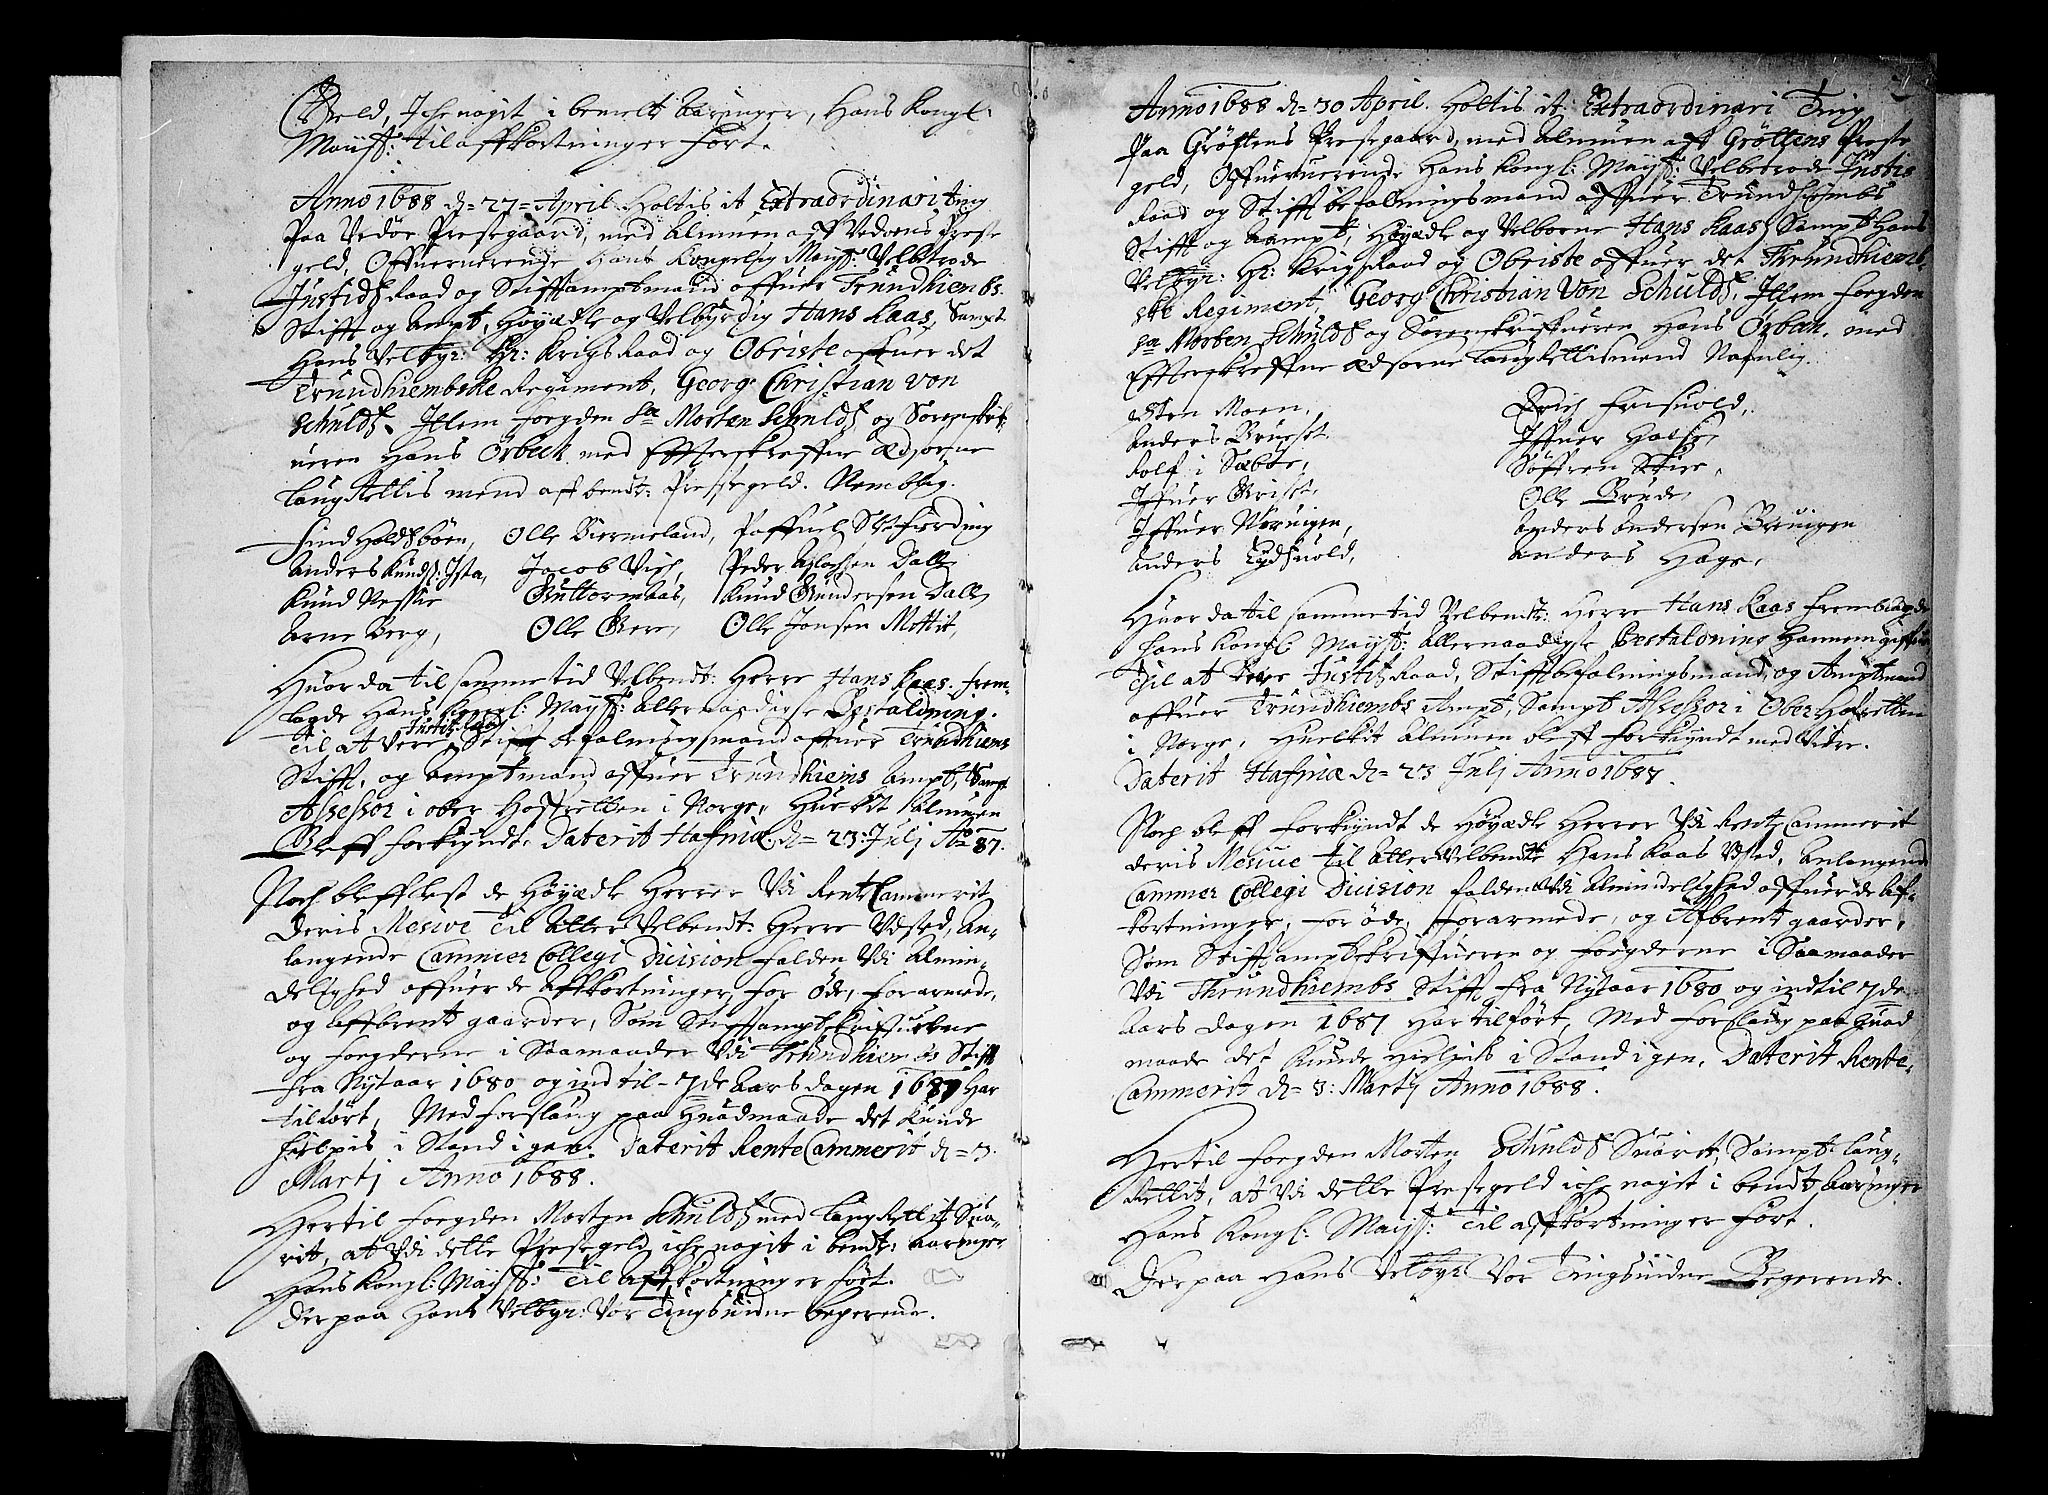 Geld, Iche nogit i bemelt Aaringer, Hans Kongl:
Mayst: til affkortninger ført.
Anno 1688 d= 27= April Holtis it Extraordinari ting
Paa Vedøe Prestegaard, med Almuen aff Vedøens Preste
geld, Offueruerende Hans Kongelig Mayst: Velbetrode
Justids Raad og Stifftamptmand offuer Trundhiembs
Stifft og Ampt, Høyædle og Velbyrdig Hans Kaas, Sampt
Hans Velbyr: Hr: Krigs Raad og Obriste offuer det
Trundhiembske Regiment, Georg Christian von
Schults, Jtem foegden Sr Morten Schults og Sorenskrif-
ueren Hans Ørbech med Effterskreffne Ædsorne
Laug Rettis mend aff bendt: Prestegeld. Nemblig.
Find Holdsbøen, Olle Biermeland, Poffuel Setfierding
Anders Kunds: Ista, Jacob Vich, Peder Aslachsen Dall,
Knud Nessue Guttormaas, Knud Gundersen Dall,
Arne Berg, Olle Gere, Olle Jonsen Mottit,
Huor da til samme tid Velbendt: Herre Hans Kaas frem-
lagde Hans Kongl: Mayst: Allernaadigste Bestaldning.
Til at vere Justitz Raad Stifft befalningsmand offuer Trundhiems
Stifft, og Amptmand offuer Trundhiems Ampt, Sampt
Assessor i ober Hoffretten i Norge, Huilkit Almuen
Bleff forkyndt. Daterit Hafniæ d= 23: Julj Ao 87.
Noch bleff lest de Høyædle Herrer Vdi RenteCammerit
Deris Mesive Til Atter Velbendt: Herre Vdsted, An-
langende Cammer Collegi Dicision falden Vdi Almin-
delighed offuer de Affkortninger, for øde, forarmede,
og Affbrent gaarder, Som Stifftamptskrifuerne
og foegderne i Saamaader Vdi Trundhiembs Stifft
fra Nytaar 1680 og ind til 7de Aars dagen 1687 Har
tilført, Med forslaug paa Huadmaade det Kunde
hielpis i Stand igen. Daterit RenteCammerit d= 3.
Martj Anno 1688.
Hertil foegden Morten Schults med Laug Rettit Sua-
rit, at Vdi dette Prestegeld iche nogit i bendt: Aaringer
Hans Kongl: Mayst: Til Affkortninger ført.
Der paa Hans Velbyr: Vor Tingsuidne begerende.
Anno 1688 d= 30 April. Holtis it Extraordinari Ting
Paa Grøttens Prestegaard, med Almuen aff Grøttens Preste
geld, Offueruerende Hans Kongl: Mayst: Velbetrode Justis
Raad og Stifft befalningsmand offuer Trundhiembs
Stifft og Aampt, Høyædle og Velborne Hans Kaas, Sampt Hans
Velbyr: Hr: Krigs Raad og Obriste offuer det Thrundhiemb-
ske Regiment, Georg Christian Von Schults, Jtem foegden
Sr Morten Schults og Sorenskriffueren Hans Ørbech, med
Effterskreffne Ædsorne Laug Rettismend Nafnlig.
Sten Moen, Erich Frisvold,
Anders Brueset Iffuer Halse,
Rolf i Sæbøe, Søffren Skier,
Iffuer Griset, Olle Brude,
Iffuer Veruigen, Anders Andersen Bruigen
Anders Eydsuold, Anders Hage,
Huor da til samme tid Velbendt: Herre Hans Kaas fremblagde
Hans Kongl Mayst: Allernaadigste Bestalning Hannem giffuen
Til at vere Justitz Raad, Stifft befalningsmand, og Amptmand
offuer Trundhiembs Ampt, Sampt Assessor i Ober Hofretten
i Norge, Huelkit Almuen bleff forkyndt med Vidre.
Daterit Hafniæ d= 23 Julj Anno 1687.
Noch bleff forkyndt de Høyædle Herrer Vdi Rente Cammerit
deris Mesiue til Atter Velbendte Hans Kaas Vdsted, Anlangende
Cammer Collegi Dicision falden Vdi Almindelighed offuer de Af-
kortninger, for øde, forarmede, og Afbrent gaarder,
Som Stifftamptskriffueren og foegderne i Saamaader
Vdi Thrundhiembs Stifft fra Nytaar 1680 og indtil 7de
Aars dagen 1687 Har tilført, Med forslaug paa Huad
maade det Kunde hielpis i Stand igen, Daterit Rente-
Cammerit d= 3: Martj Anno 1688.
Hertil foegden Morten Schults Suaret, Sampt Laug-
Rettit, at Vdi dette Prestegeld iche nogit i bendt Aaringer
Hans Kongl: Mayst: Til affkortninger ført.
Der paa Hans Velbyr: Vor Tingsuidne Begerende.